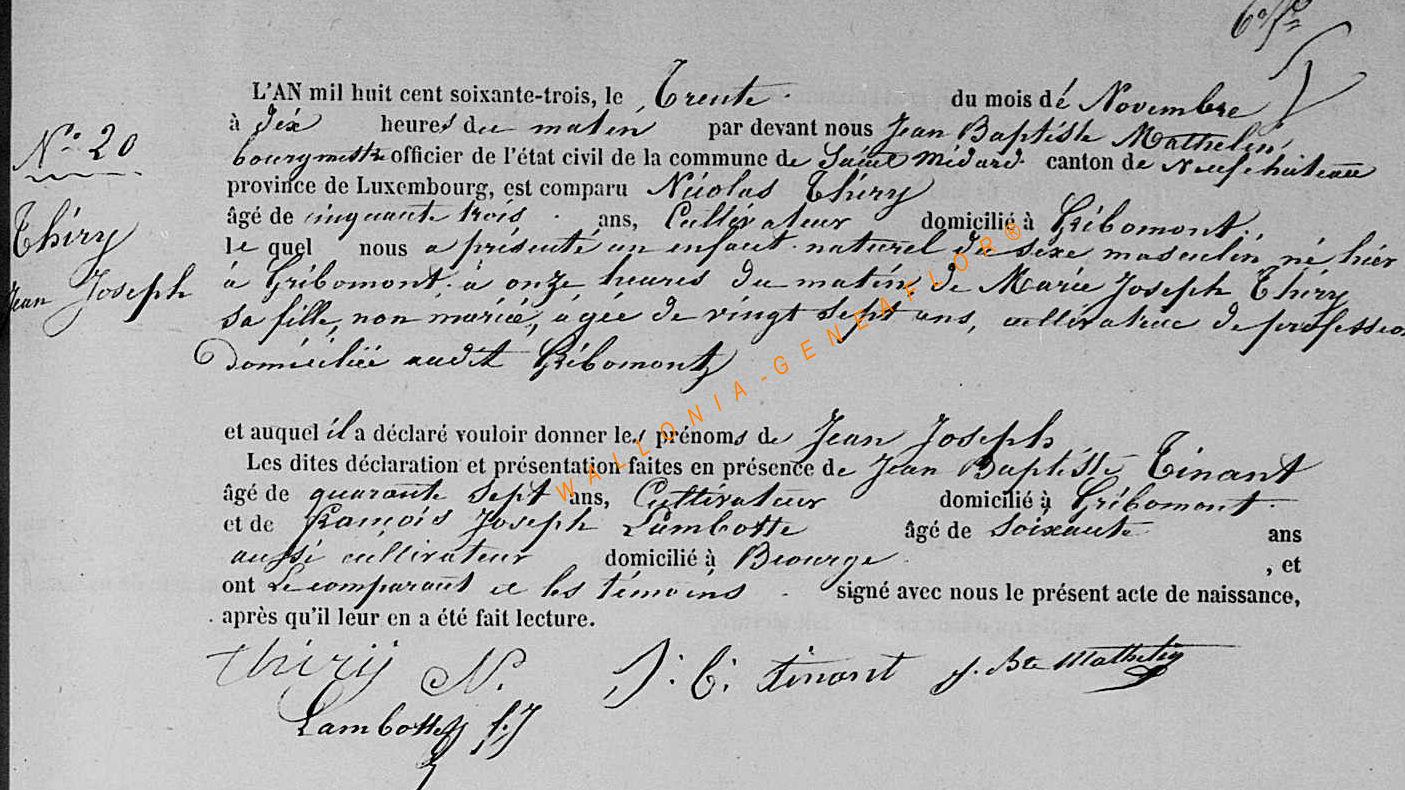 L'AN mil huit cent soixante-trois, le Trente du mois de Novembre
N° 20
à dix heures du matin par devant nous Jean Baptiste Mathelin,
bourgmestre officier de l'état civil de la commune de Saint Médard canton de Neufchâteau
province de Luxembourg, est comparu Nicolas Thiry
Thiry
Jean Joseph
âgé de cinquante trois ans, Cultivateur domicilié à Gribomont,
le quel nous a présenté un enfant naturel de sexe masculin, né hier
à Gribomont à onze heures du matin, de Marie Joseph Thiry
sa fille, non mariée, agée de vingt sept ans, cultivatrice de profession
Domiciliée audit Gribomont
et auquel il a déclaré vouloir donner les prénoms de Jean Joseph
Les dites déclaration et présentation faites en présence de Jean Baptiste Tinant
âgé de quarante sept ans, Cultivateur domicilié à Gribomont
et de François Joseph Lambotte âgé de Soixante ans
aussi cultivateur domicilié à Biourge , et
ont le comparant et les témoins signé avec nous le présent acte de naissance,
après qu'il leur en a été fait lecture.
Thiry N. J. B. tinant J. Bte Mathelin
Lambotte f. J
WALLONIA-GENEAFLOR®